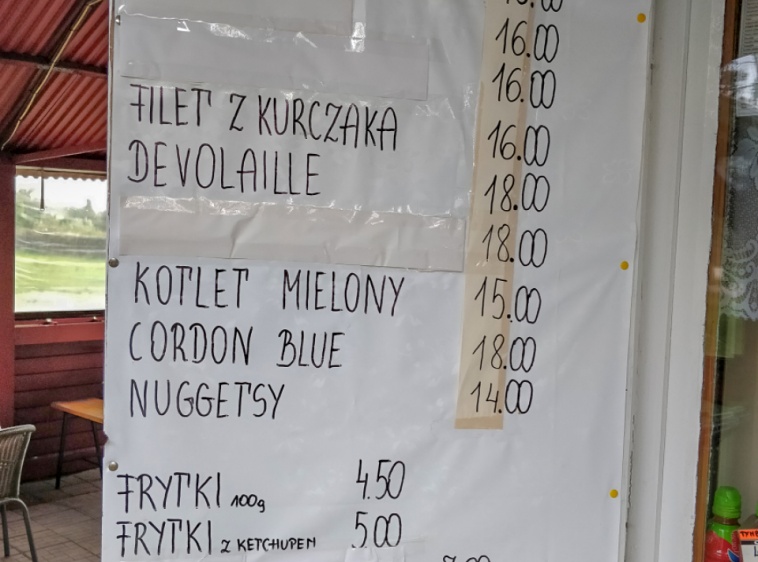 16.00
16.00
FILET Z KURCZAKA 16.00
DEVOLAILLE 18.00
18.00
KOTLET MIELONY 15.00
CORDON BLUE 18.00
NUGGETSY 14.00
FRYTKI 100g 4.50
FRYTKI Z KETCHUPEM 5.00